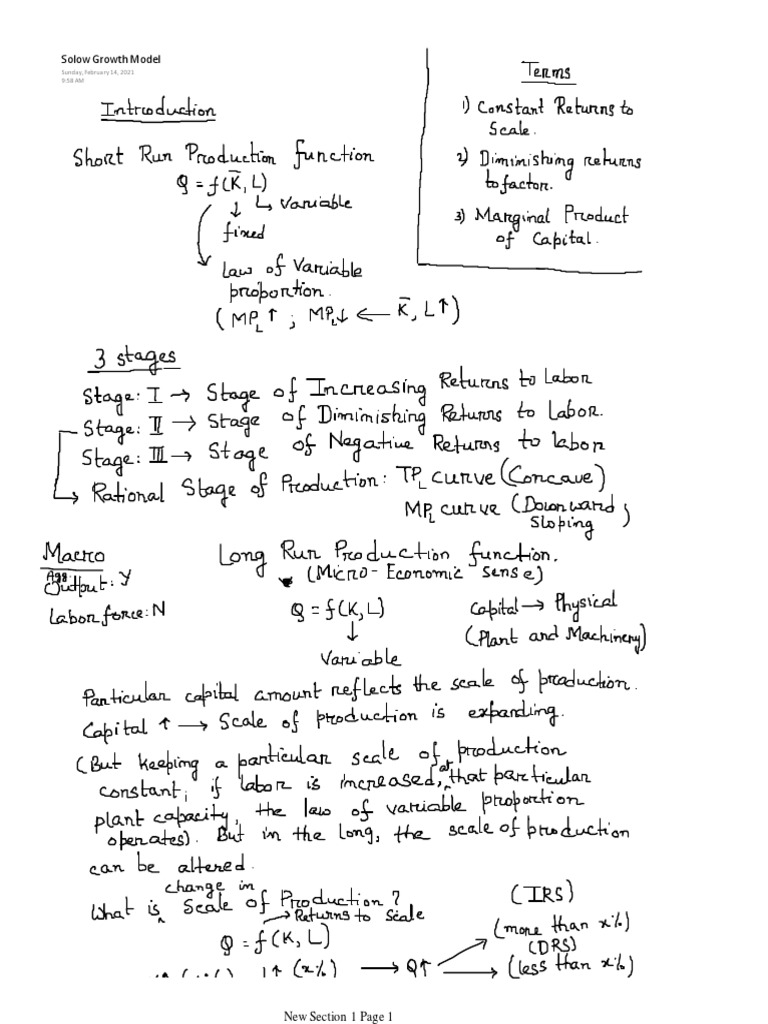 Solow Growth Model
Sunday, February 14, 2021
9:58 AM
Introduction
Short Run Production function
Q = f(K̄, L)
↓ ↳ variable
fixed
law of variable
proportion.
(MP_L ↑ ; MP_L↓ ← K̄, L↑)
Terms
1) Constant Returns to
Scale.
2) Diminishing returns
to factor.
3) Marginal Product
of Capital.
3 stages
Stage: I → Stage of Increasing Returns to Labor
Stage: II → Stage of Diminishing Returns to Labor.
Stage: III → Stage of Negative Returns to labor
↳ Rational Stage of Production: TP_L curve (Concave)
MP_L curve (Downward
sloping)
Macro
Agg
Output: Y
Labor force: N
Long Run Production function.
(Micro-Economic sense)
Q = f(K, L)
↓
Variable
Capital → Physical
(Plant and Machinery)
Particular capital amount reflects the scale of production.
Capital ↑ → Scale of production is expanding.
(But keeping a particular scale of production
constant, if labor is increased, at that particular
plant capacity, the law of variable proportion
operates). But in the long, the scale of production
can be altered.
What is change in Scale of Production?
→ Returns to Scale
Q = f(K, L)
↑ (x%) → Q↑
(IRS)
(more than x%)
(DRS)
(less than x%)
New Section 1 Page 1